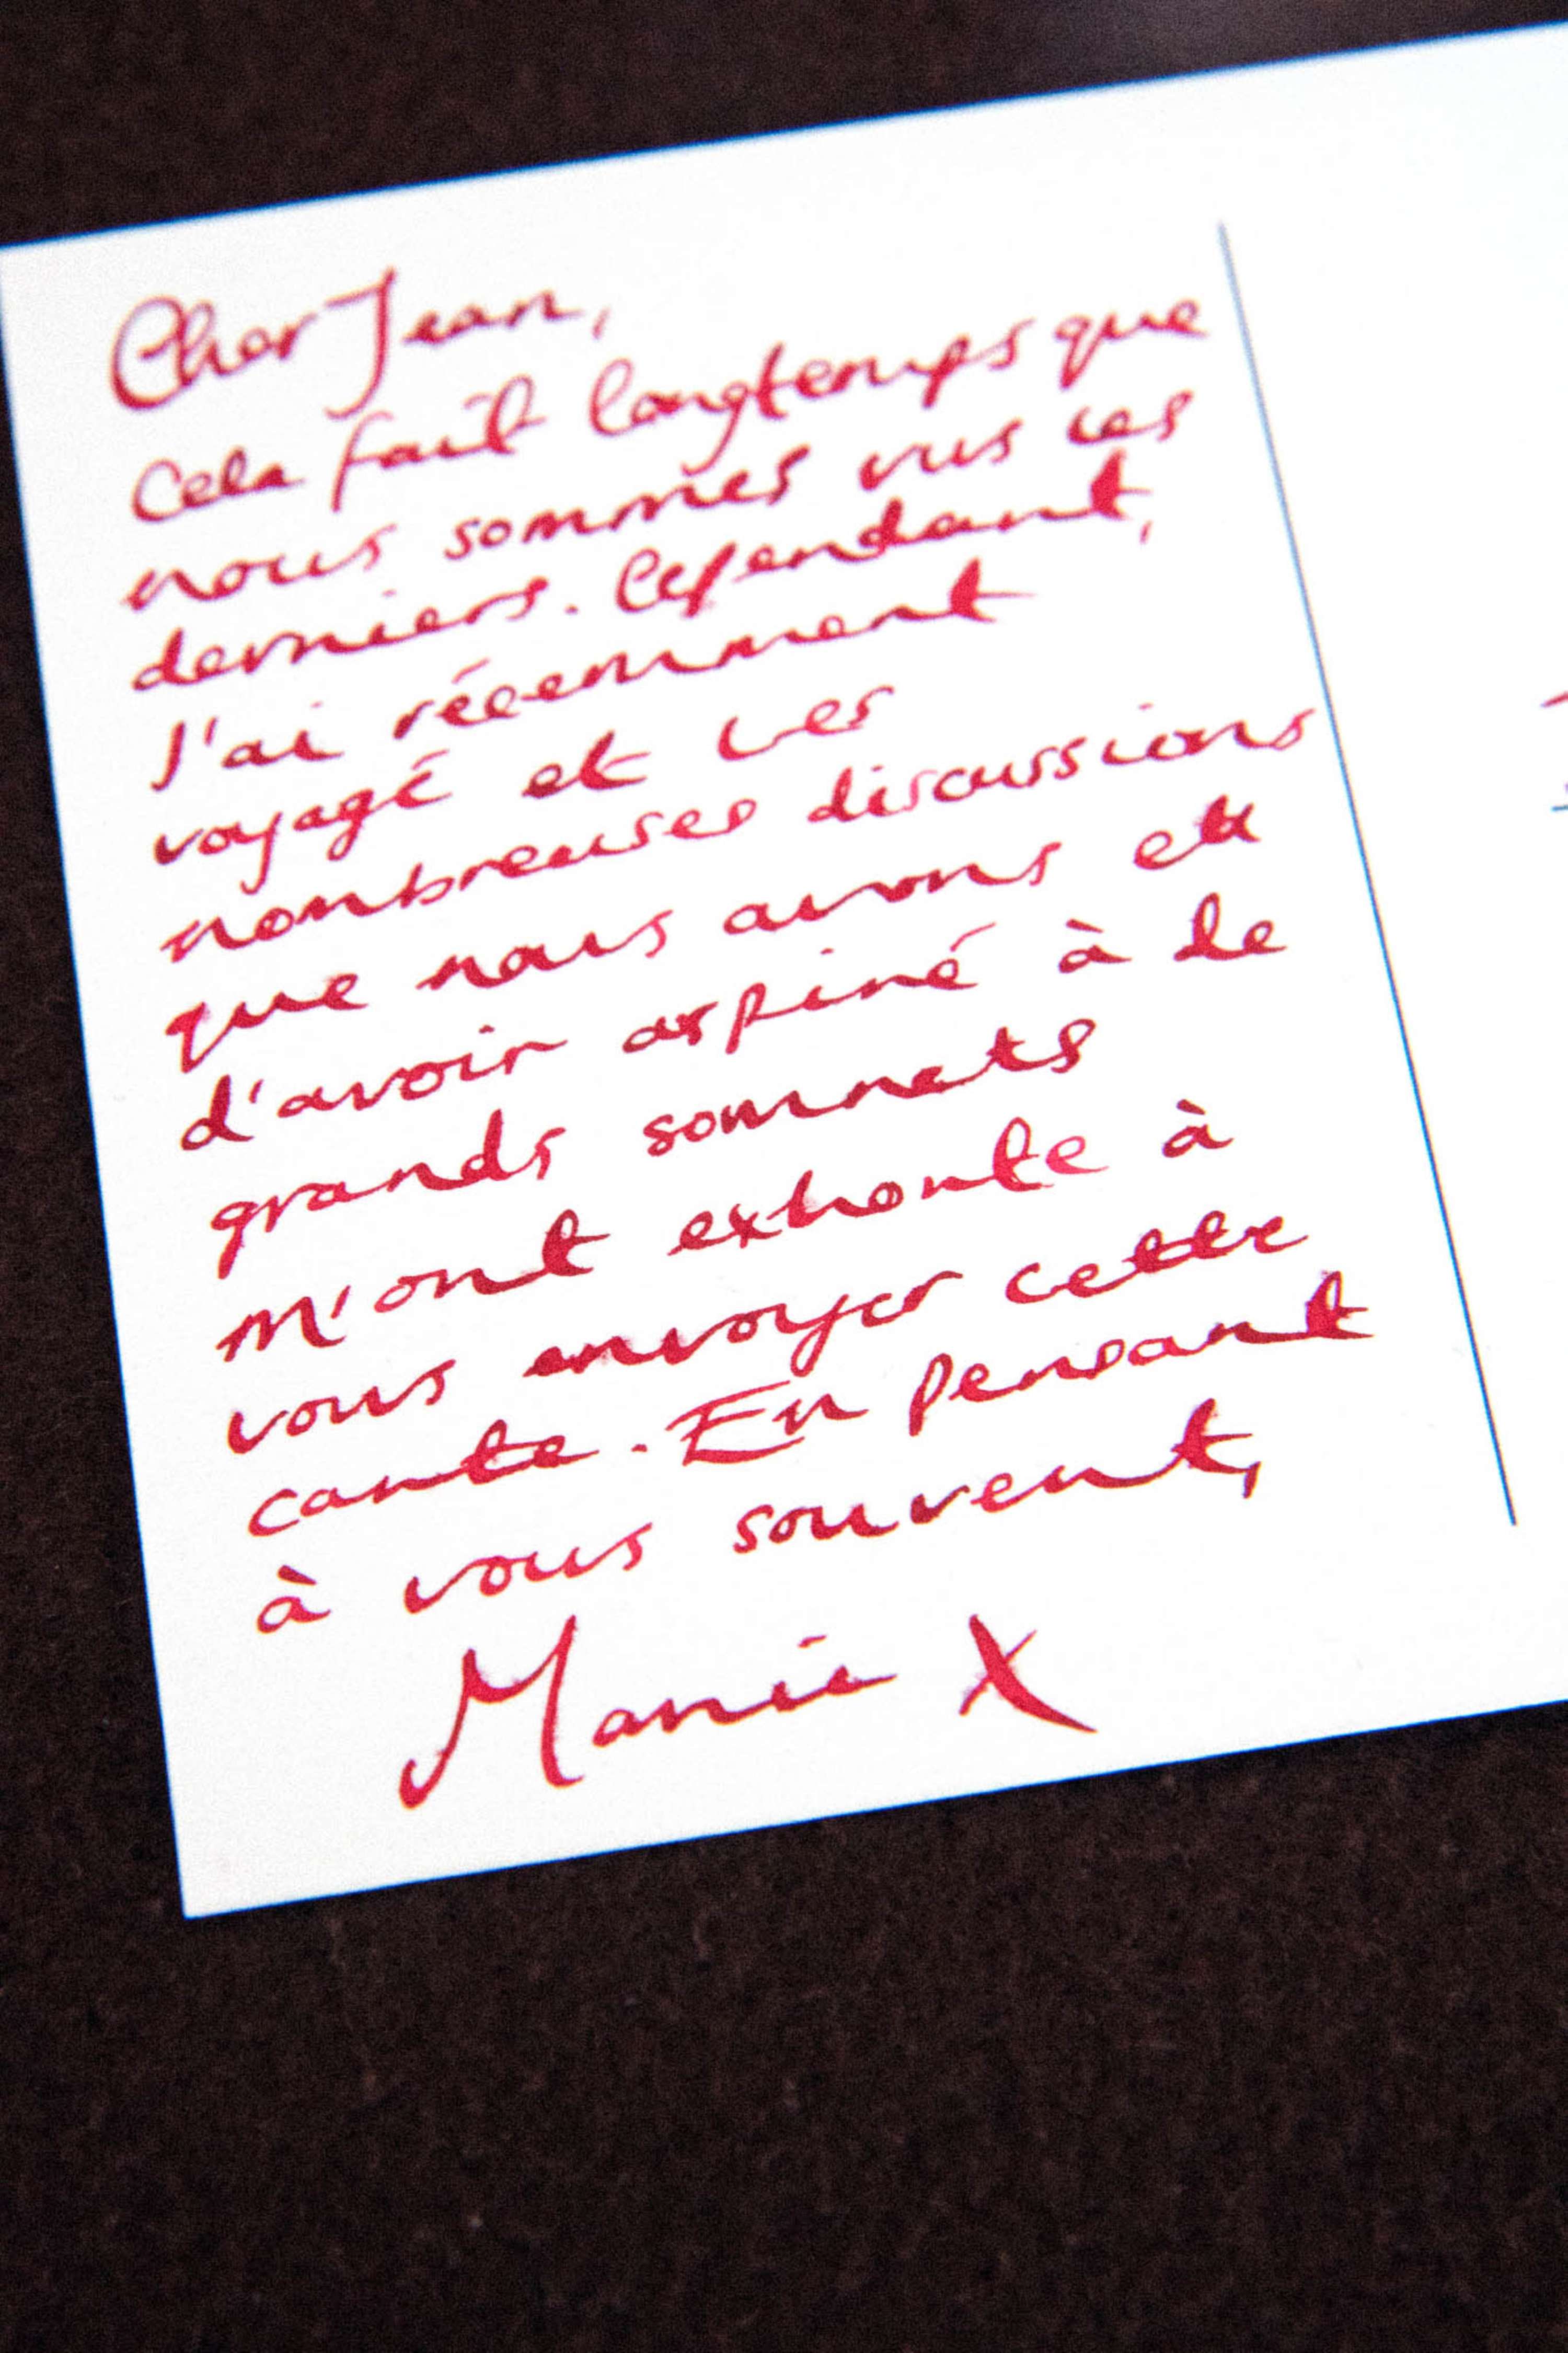 Cher Jean,
Cela fait longtemps que
nous sommes vus ces
derniers. Cependant,
j'ai récemment
voyagé et les
nombreuses discussions
que nous avons eu
d'avoir aspiré à de
grands sommets
m'ont exhorté à
vous envoyer cette
carte. En pensant
à vous souvent,
Marie X